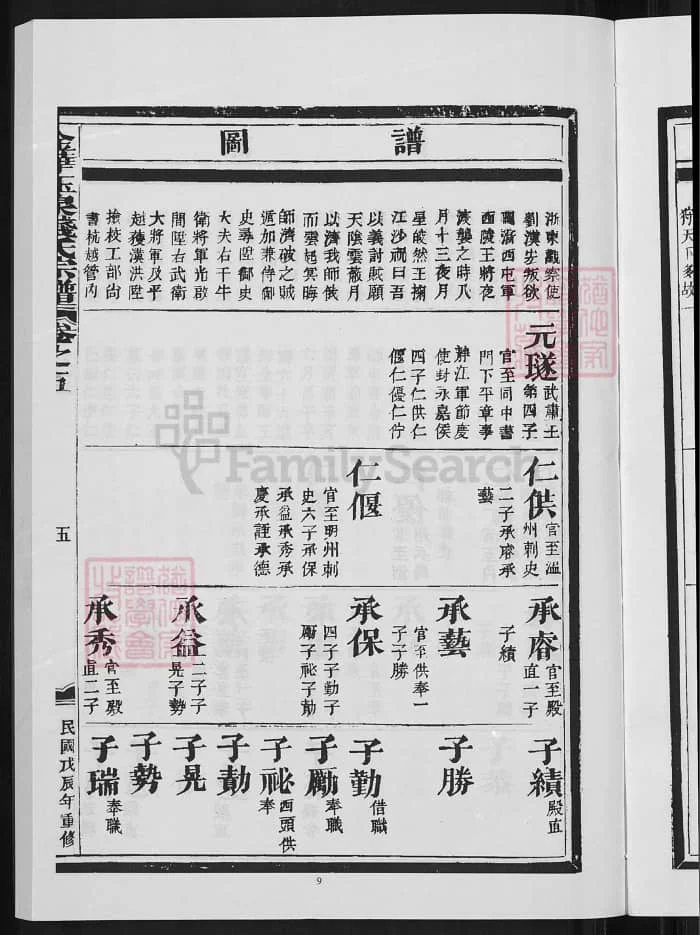 譜圖
浙東觀察使
劉漢宏叛欲
圖浙西屯軍
西陵王將夜
渡襲之時八
月十三夜月
星皎然王掬
江沙祝曰吾
以義討賊願
天陰雲蔽月
以濟我師俄
而雲起冥晦
師濟破之賊
遁加兼侍御
史尋陞御史
大夫右千牛
衛將軍光啟
間陞右武衛
大將軍及平
越獲漢洪陞
檢校工部尚
書杭越管內
元璲武肅王
第四子
官至同中書
門下平章事
靜江軍節度
使封永嘉侯
四子仁供仁
偓仁優仁佇
仁供官至溫
州刺史
二子承睿承
藝
仁偓
官至明州刺
史六子承保
承益承秀承
慶承謹承德
承睿官至殿
直一子
子績
承藝
官至供奉一
子子勝
承保
四子子勤子
勵子祕子勣
承益二子子
晃子勢
承秀官至殿
直二子
子績殿直
子勝
子勤借職
子勵奉職
子祕西頭供
奉
子勣
子晃
子勢
子瑞奉職
金華玉泉錢氏宗譜 卷之五
五
民國戊辰年重修
9
FamilySearch